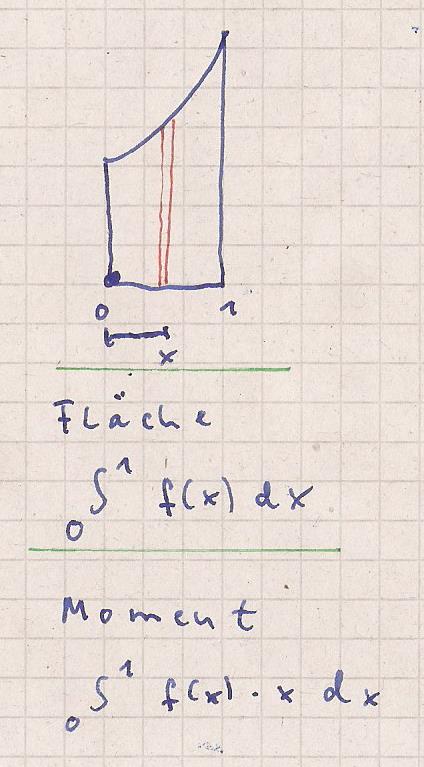 0 1
x
Fläche
₀∫¹ f(x) dx
Moment
₀∫¹ f(x) · x dx